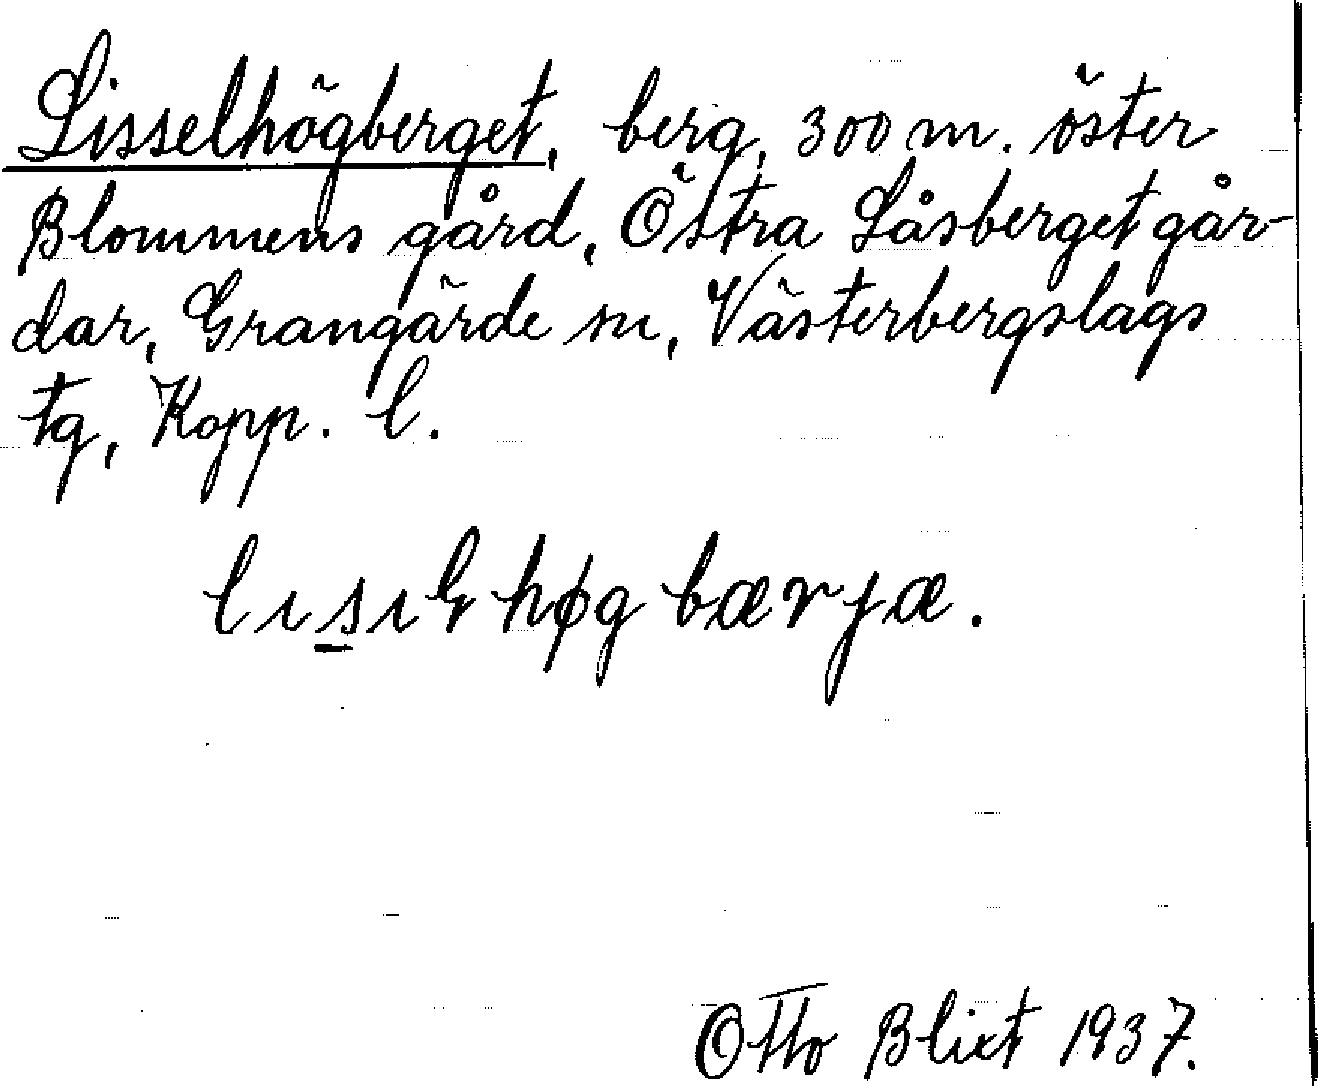 Lisselhögberget, berg, 300 m. öster
Blommens gård, Östra Låsberget går-
dar, Grangärde sn, Västerbergslags
tg, Kopp. l.
lısıɬhøgbærjæ.
Otto Blixt 1937.